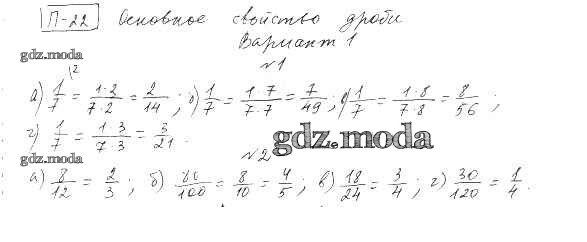 П-22 Основное свойство дроби
Вариант 1
gdz.moda
№1
а) 1/7 |2 = 1·2/7·2 = 2/14 ; б) 1/7 = 1·7/7·7 = 7/49 ; в) 1/7 = 1·8/7·8 = 8/56 ;
г) 1/7 = 1·3/7·3 = 3/21 .
gdz.moda
gdz.moda
№2
а) 8/12 = 2/3 ; б) 80/100 = 8/10 = 4/5 ; в) 18/24 = 3/4 ; г) 30/120 = 1/4 .